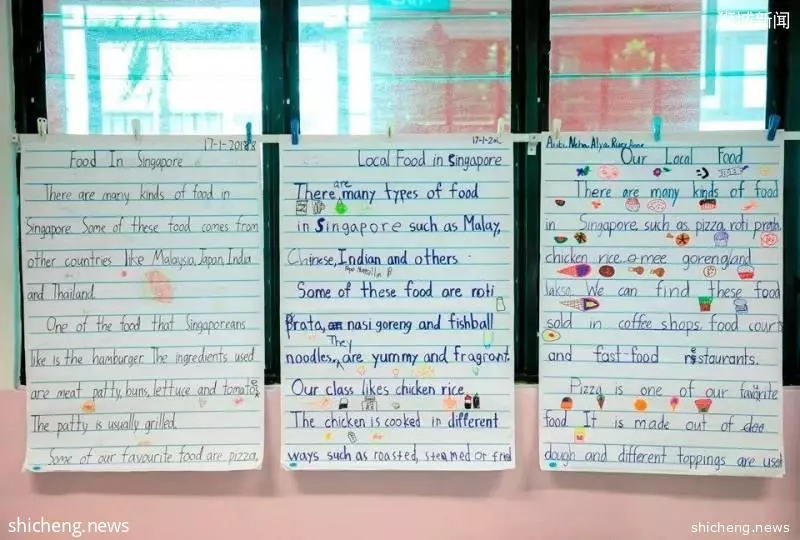 17-1-2018
Food In Singapore
There are many kinds of food in
Singapore. Some of these food comes from
other countries like Malaysia, Japan, India
and Thailand.
One of the food that Singaporeans
like is the hamburger. The ingredients used
are meat patty, buns, lettuce and tomatoes
The patty is usually grilled.
Some of our favourite food are pizza,
17-1-20
Local Food in Singapore
There are many types of food
in Singapore such as Malay,
Chinese, Indian and others.
Some of these food are roti
Prata, nasi goreng and fishball
noodles. They are yummy and fragrant.
Our class likes chicken rice.
The chicken is cooked in different
ways such as roasted, steamed or fried
Neha, Alya,
Our Local Food
There are many kinds of food
in Singapore such as pizza, roti prata
chicken rice, mee goreng and
laksa. We can find these food
sold in coffee shops, food court
and fast-food restaurants.
Pizza is one of our favourite
food. It is made out of
dough and different toppings are used
狮城新闻
shicheng.news
shicheng.news